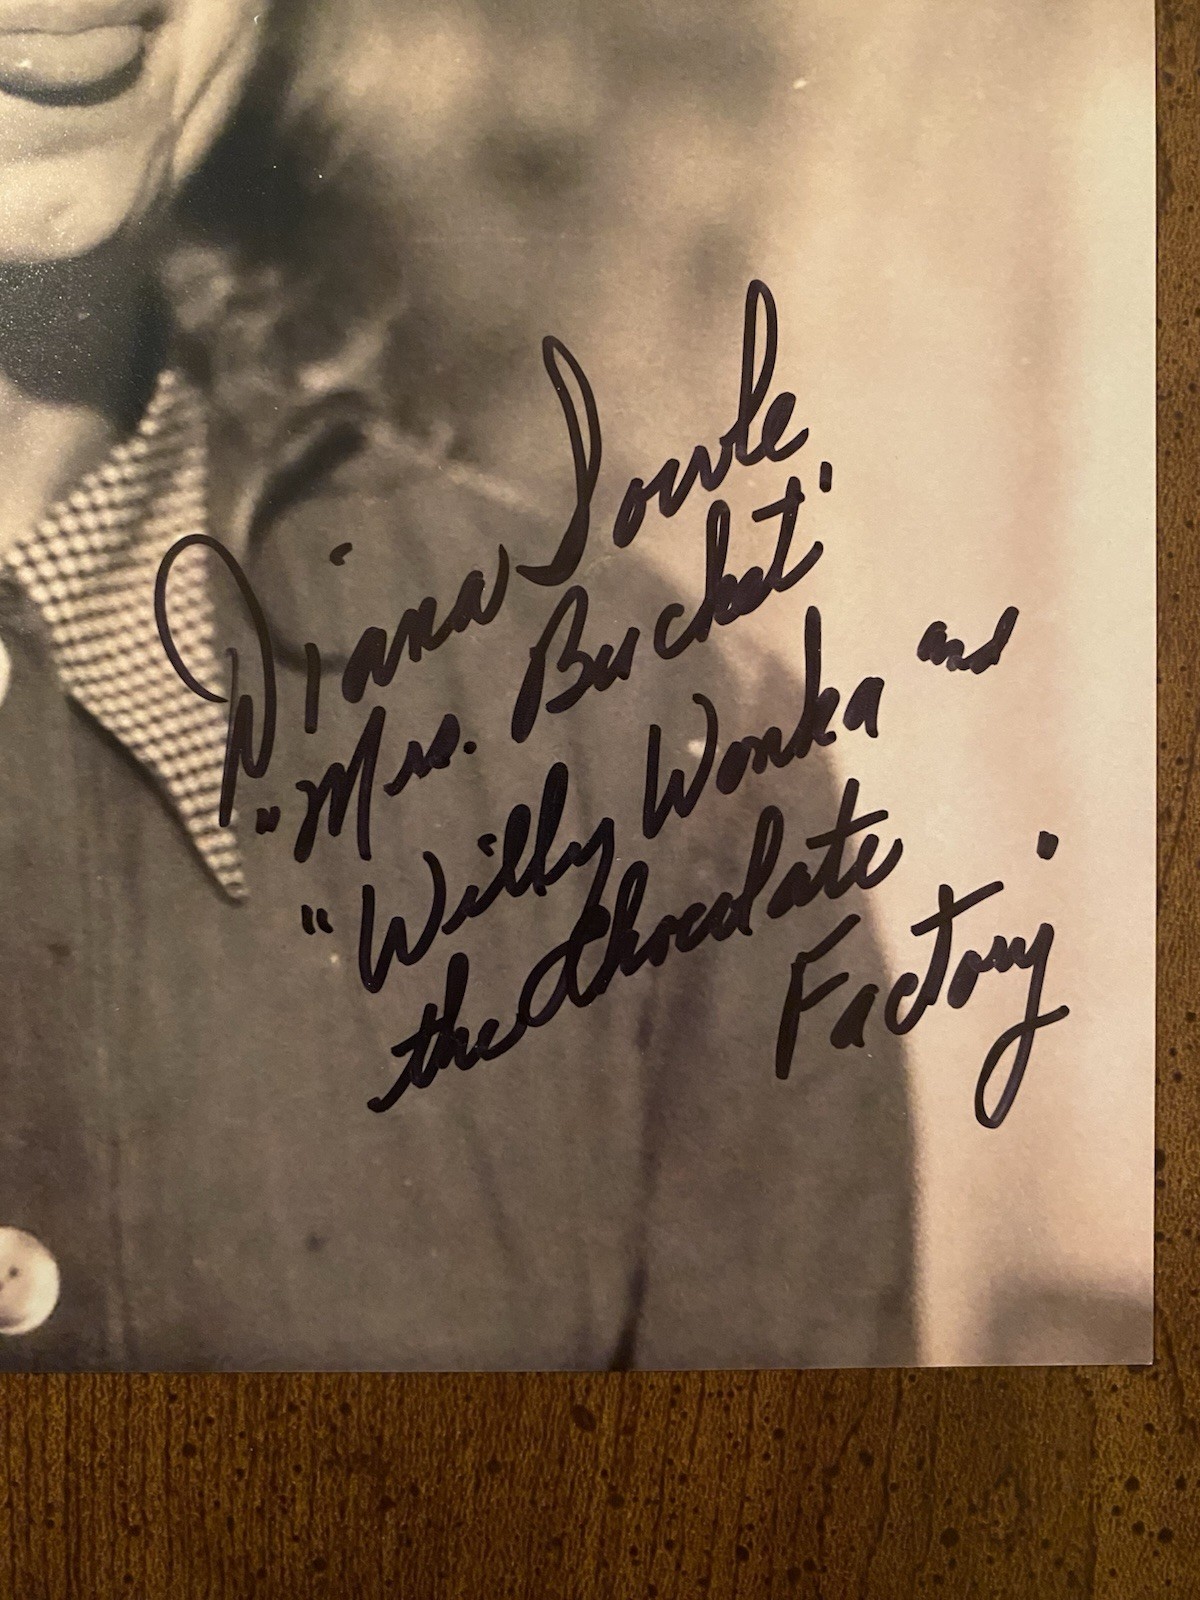 Diana Sowle
"Mrs. Bucket"
"Willy Wonka and
the Chocolate
Factory"